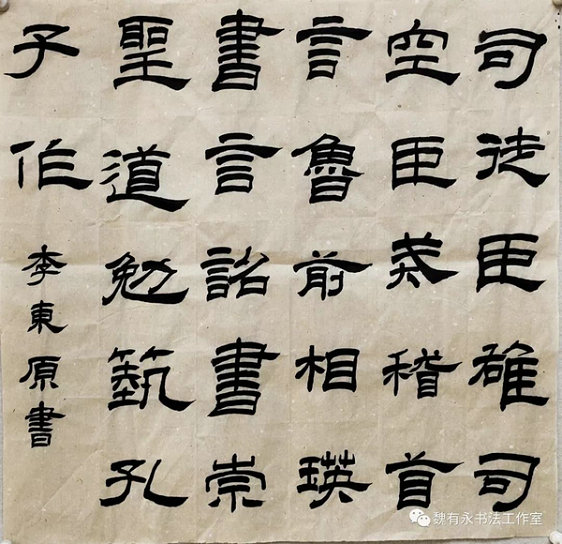 司徒臣雄司
空臣戒稽首
言魯前相瑛
書言詔書崇
聖道勉藝孔
子作
李東原書
魏有永书法工作室